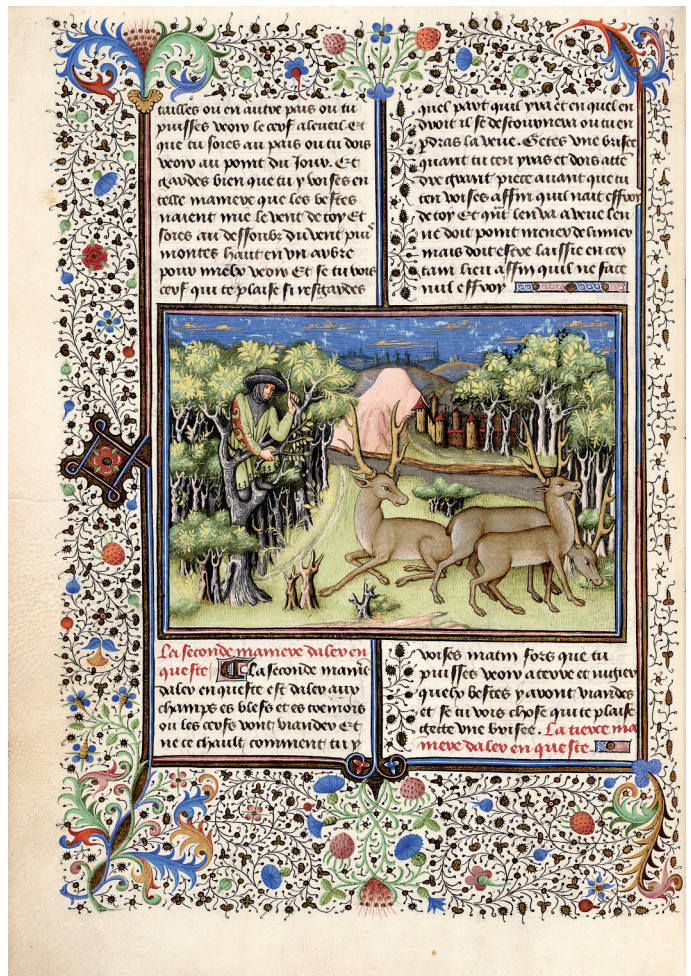 tailles ou en autre pais ou tu
puisses veoir le cerf a lcueil. Et
que tu soies au pais ou tu dois
veoir au point du Jour. Et
gardes bien que tu y voises en
telle maniere que les bestes
naient mie le vent de toy Et
soies au dessoubz du vent puis
montes hault en vn arbre
pour mielx veoir Et se tu vois
cerf qui te plaise si resgardes
quel part quil yra et en quel en
droit il se destournera ou tu en
pdras la veue. Gectes vne brisee
quant tu ten yras et dois atte
dre grant piece auant que tu
ten voises affin quil nait effroy
de toy Et quil len va a veue len
ne doit point mener de limier
mais doit estre laissie en cer
tain lieu affin quil ne face
nul effroy
La seconde maniere daler en
queste
A la seconde manie
daler en queste est daler aux
champs es blefs et es tremois
ou les cerfs vont viander Et
ne te chault comment tu y
voises matin fors que tu
puisses veoir a terre et iugier
quelx bestes y auont viandes
et se tu vois chose qui te plaise
gecte vne brisee. La tierce ma
niere daler en queste.